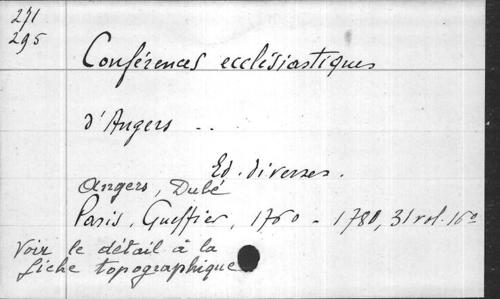 271
295
Conférences ecclésiastiques
d'Angers ..
Ed. diverses.
Angers, Dubé
Paris, Gueffier, 1760 - 1780, 31 vol. 16º
Voir le détail à la
fiche topographique